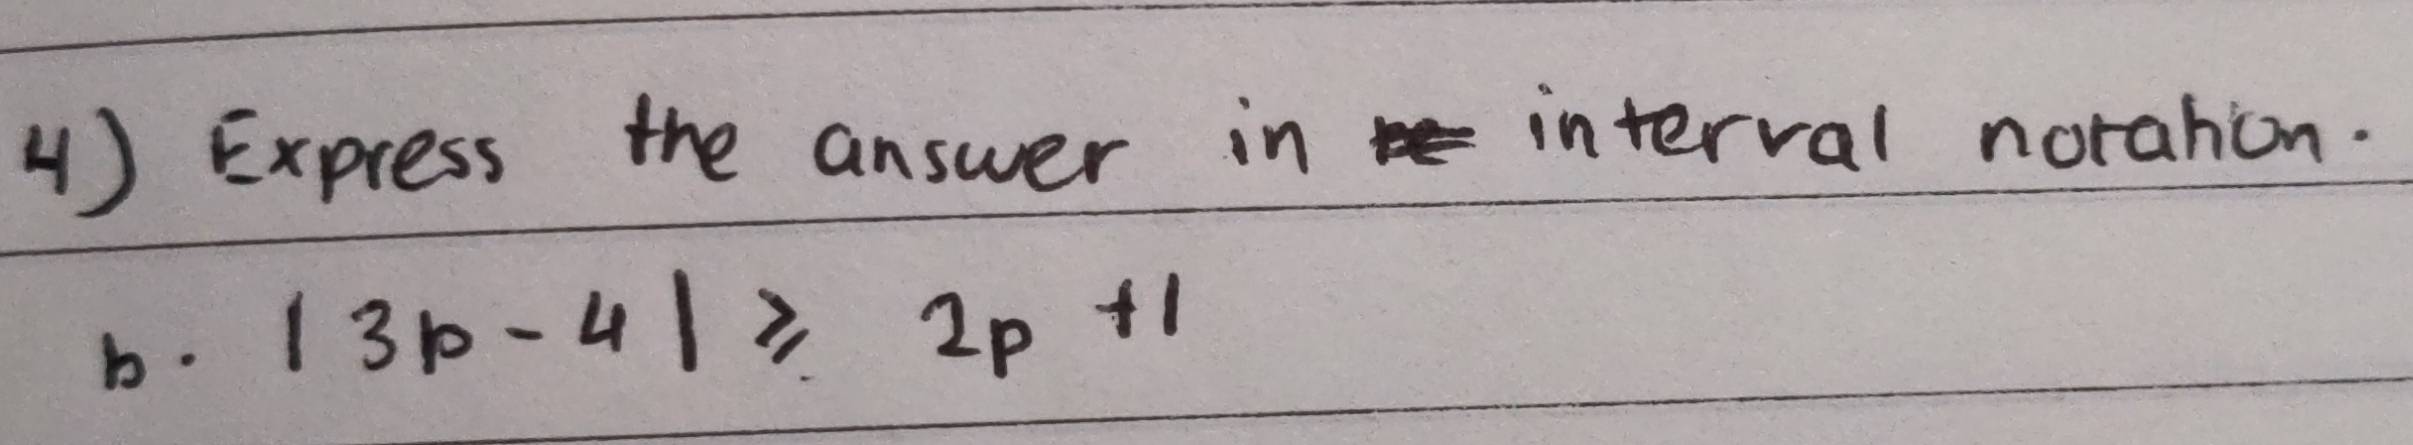 4) Express the answer in interval notation.
b. |3p-4| ⩾ 2p +1